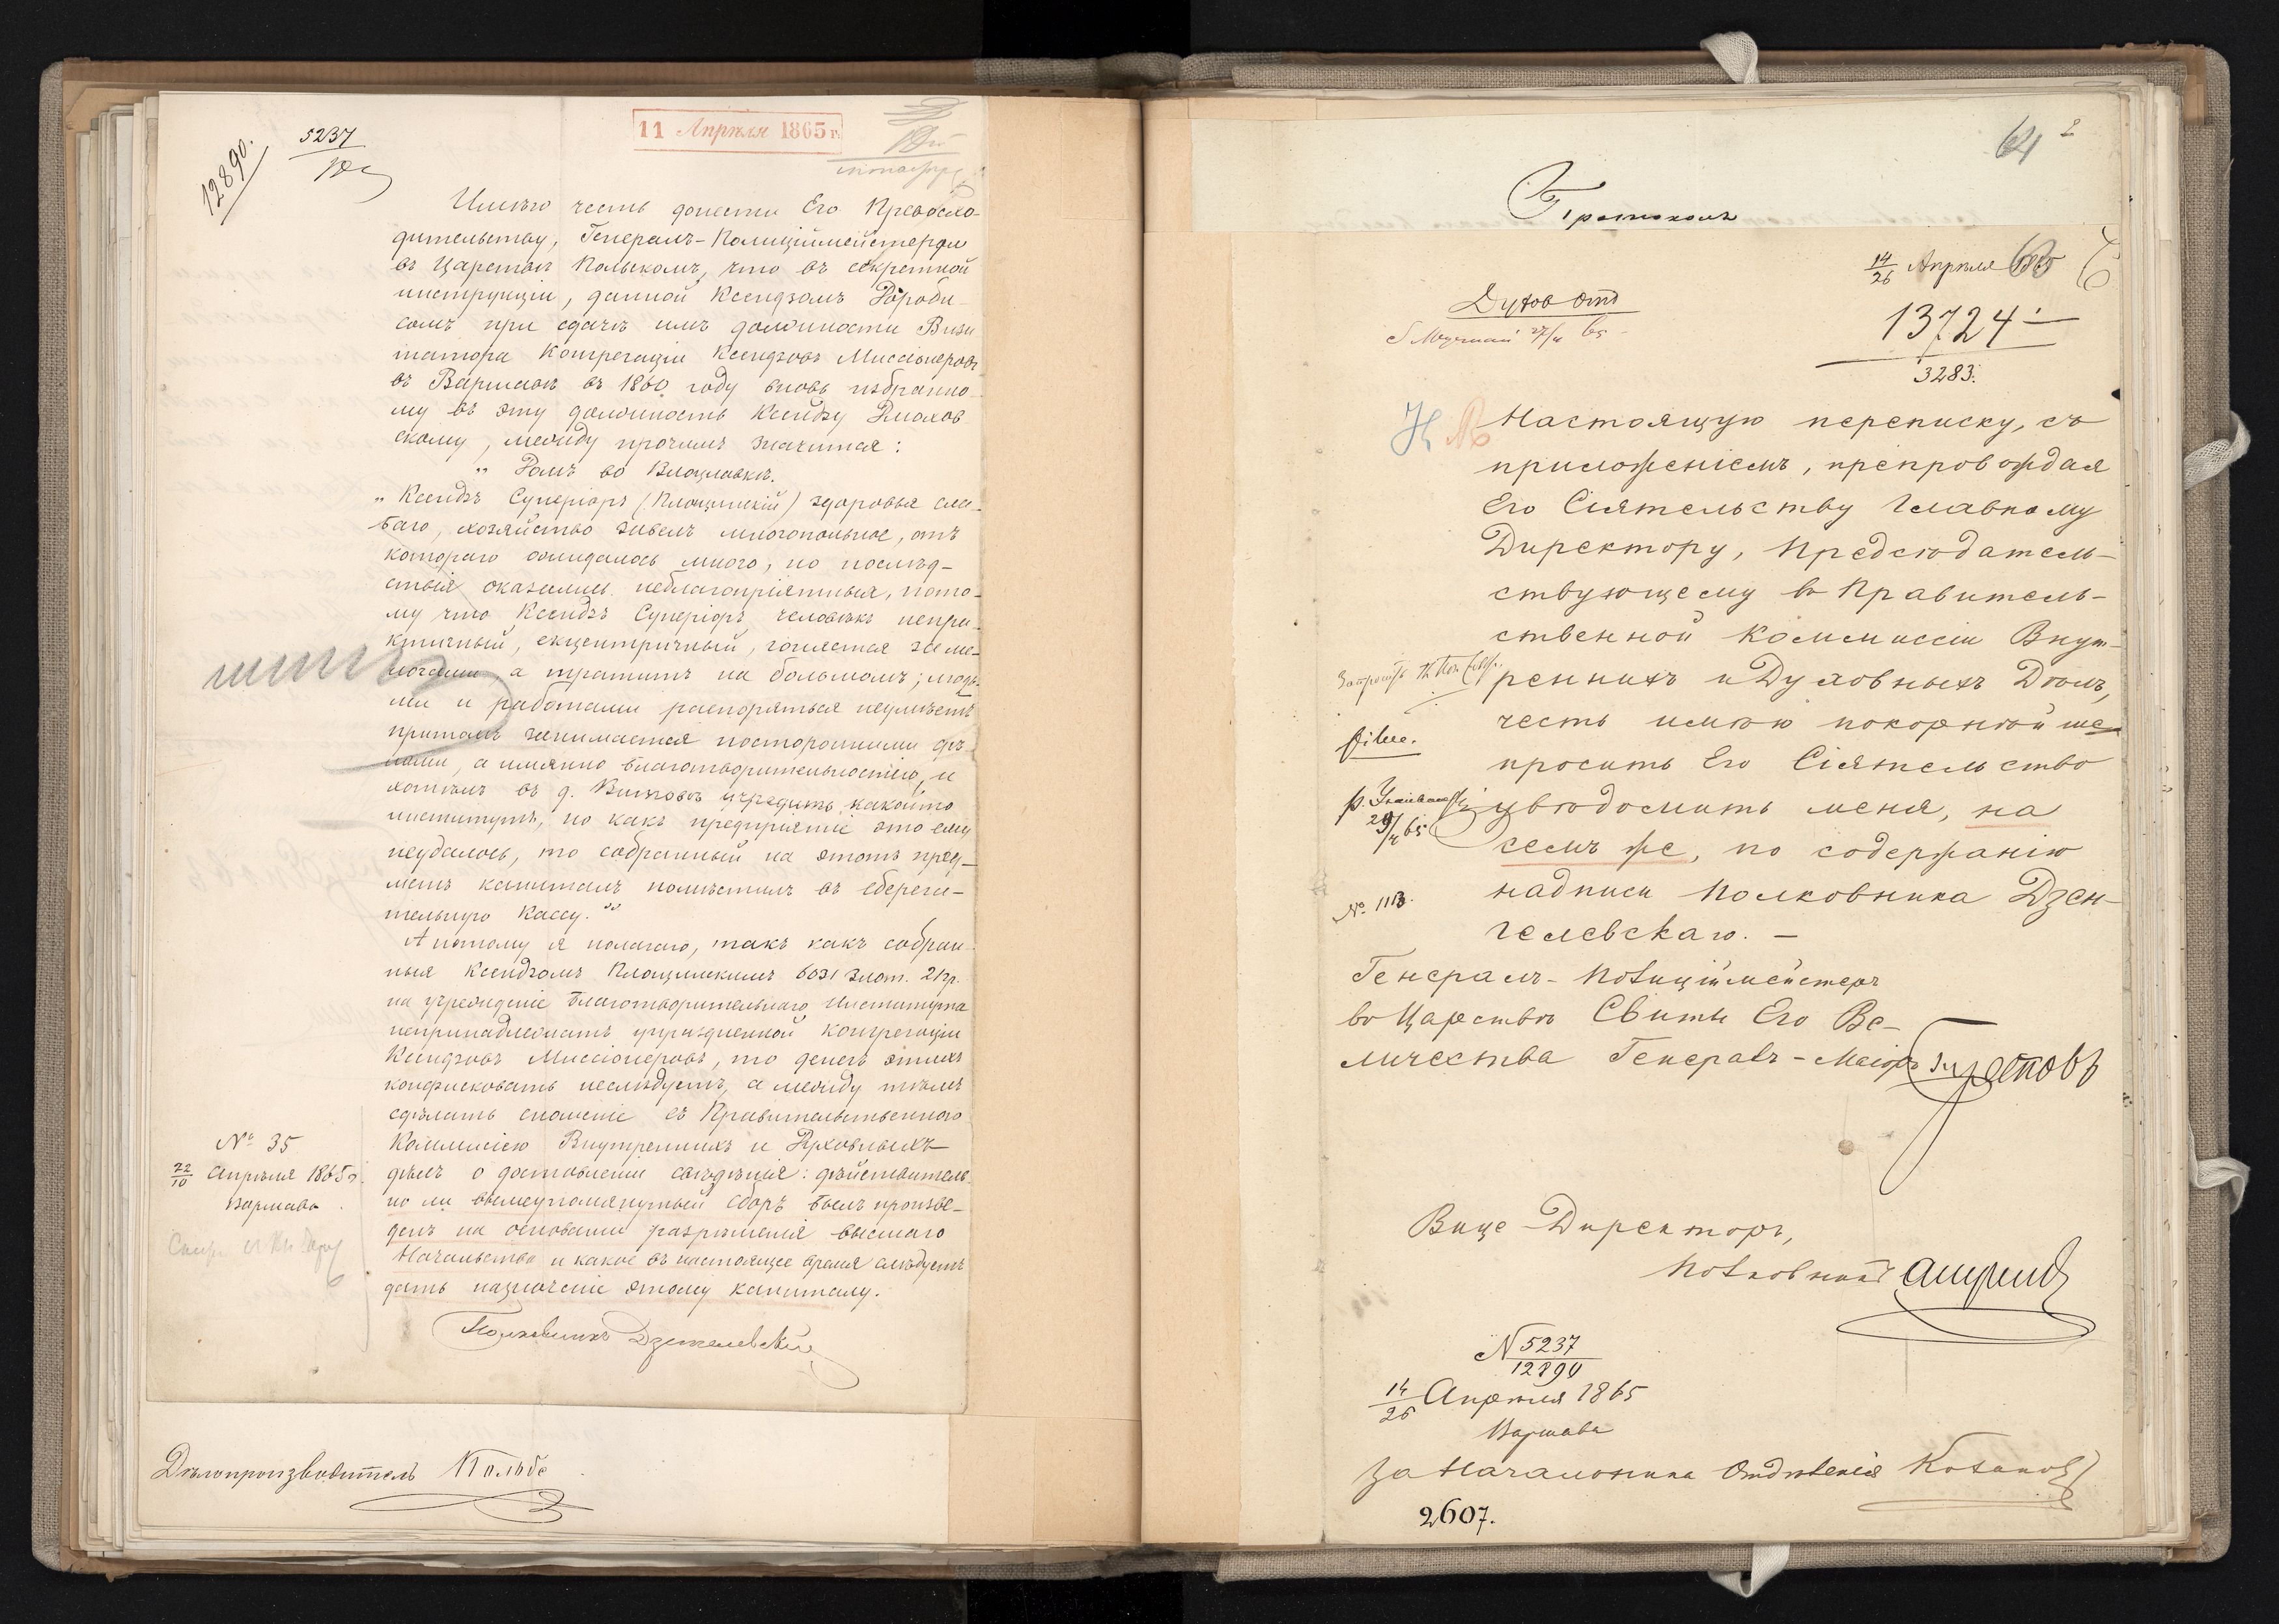 12890.
5237
11 Апрѣля 1865 г.
Имѣю честь донести Его Превосхо-
дительству, Генералъ-Полиціймейстеру
въ Царствѣ Польскомъ, что въ секретной
инструкціи, данной Ксендзомъ Дороби-
сомъ при сдачѣ имъ должности Визи
татора Конгрегаціи Ксендзовъ Миссіонеровъ
въ Варшавѣ въ 1860 году вновь избранно-
му въ эту должность Ксендзу
скому, между прочимъ значится:
„ Домъ во Влоцлавкѣ.
„ Ксендзъ Суперіоръ (Площинскій) здоровья сла-
баго, хозяйство завелъ многопольное, отъ
котораго ожидалось много, но послѣд-
ствія оказались неблагопріятныя, пото-
му что Ксендзъ Суперіоръ человѣкъ непра-
ктичный, ексцентричный, гоняется за ме-
лочами, а тратитъ на большомъ; людь-
ми и работами распоряться неумѣетъ
притомъ занимается посторонними дѣ-
лами, а имянно благотворительностію, и
хотѣлъ въ д. учредить какойто
институтъ, но какъ предпріятіе это ему
неудалось, то собранный на этотъ пред-
метъ капиталъ помѣстилъ въ сберега-
тельную Кассу."
А потому я полагаю, такъ какъ собран-
ныя Ксендзомъ Площинскимъ 6031 злот. 21 гр.
на учрежденіе благотворительнаго Института
непринадлежатъ упраздненной Конгрегаціи
Ксендзовъ Миссіонеровъ, то денегъ этихъ
конфисковать неслѣдуетъ, а между тѣмъ
сдѣлать сношеніе съ Правительственною
Коммисіею Внутреннихъ и Духовныхъ
дѣлъ о доставленіи свѣдѣнія: дѣйствитель-
но ли вышеупомянутый сборъ былъ произве-
денъ на основаніи разрѣшенія высшаго
Начальства и какое въ настоящее время слѣдуетъ
дать назначеніе этому капиталу.
Полковникъ Дзенгелевскій
№ 35
22/10 Апрѣля 1865 г.
Варшава
Дѣлопроизводитель Кольбе
64
2
Протоколъ
14/26 Апрѣля 1865
Духов Отд
27/4 65
13724
3283.
Настоящую переписку, съ
приложеніемъ, препровождая
Его Сіятельству Главному
Директору, Предсѣдатель-
ствующему въ Правитель-
ственной Коммиссіи Внут-
реннихъ и Духовныхъ Дѣлъ,
честь имѣю покорнѣйше
просить Его Сіятельство
увѣдомить меня, на
семъ же, по содержанію
надписи Полковника Дзен-
гелевскаго. —
pilne.
29/4 65
№ 1113.
Генералъ-Полиціймейстеръ
въ Царствѣ Свиты Его Ве-
личества Генералъ-Маіоръ Треповъ
Вице-Директоръ,
Полковникъ
N 5237/12890
14/26 Апрѣля 1865
Варшава
За Начальника Отдѣленія
2607.